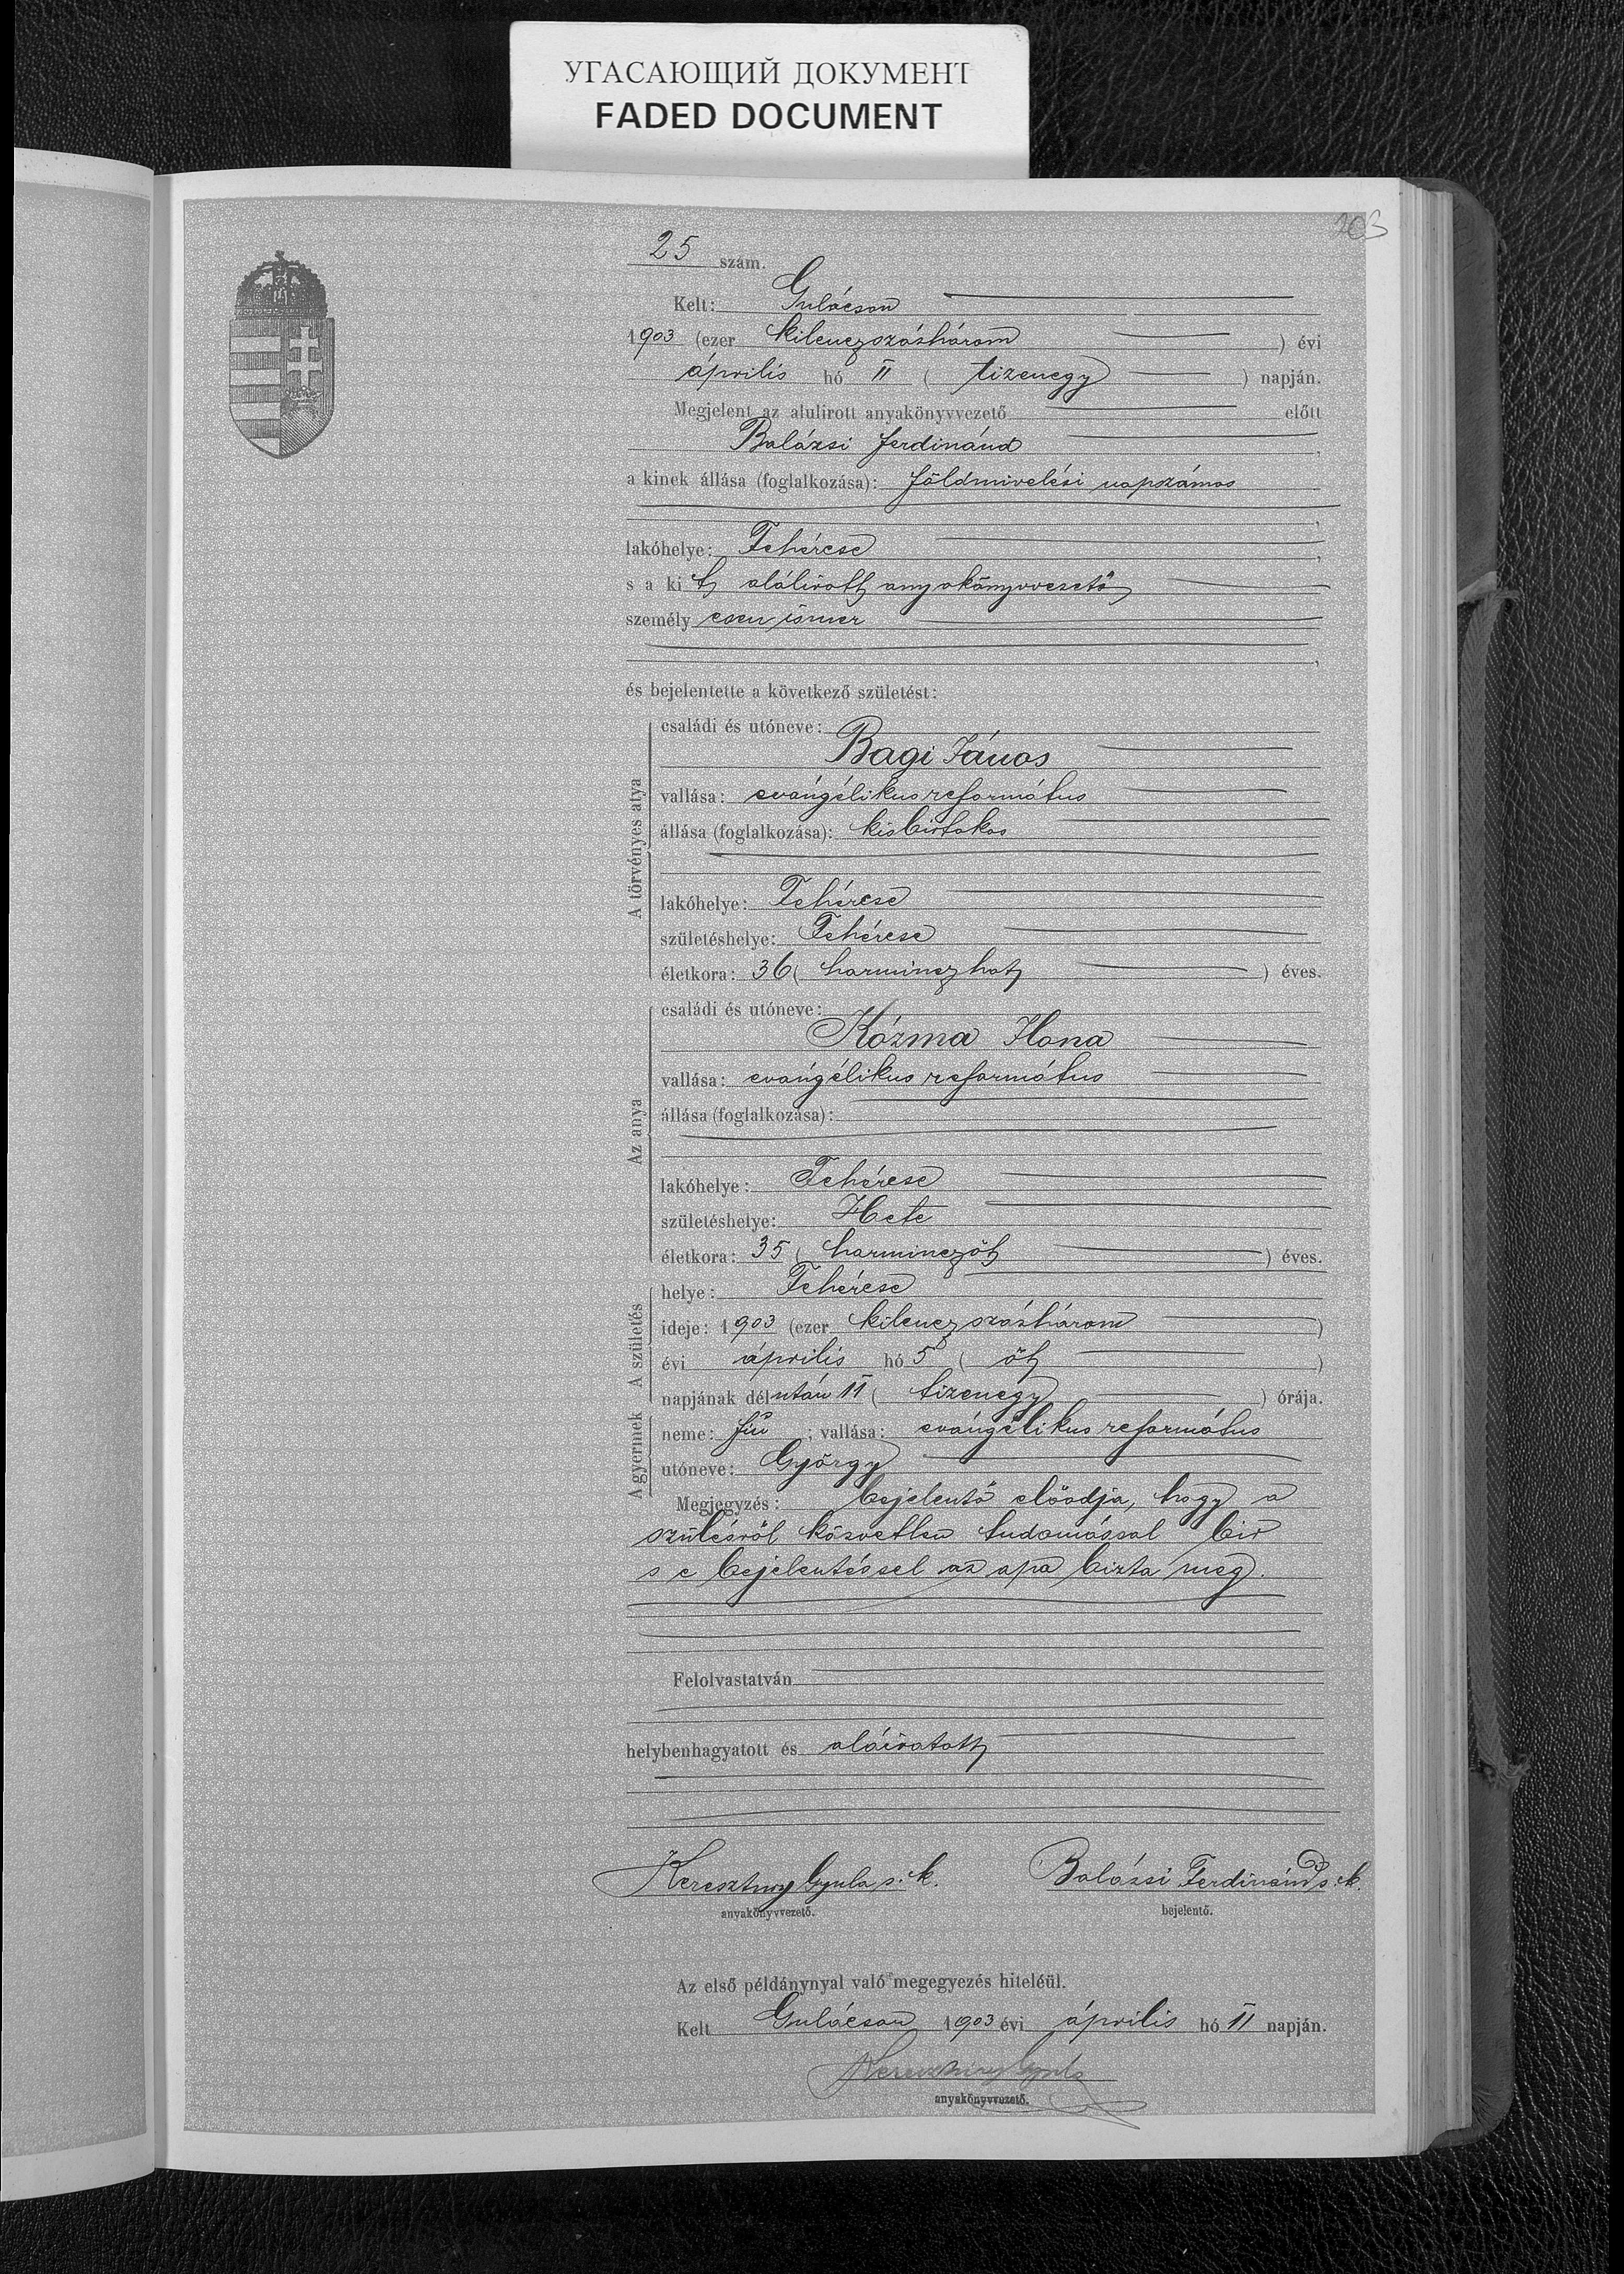 УГАСАЮЩИЙ ДОКУМЕНТ
FADED DOCUMENT
203
25 szám.
Kelt: Gulácson
1903 (ezer kilenczszázhárom ) évi
április hó 11 ( tizenegy ) napján.
Megjelent az alulirott anyakönyvvezető előtt
Balázsi Ferdinánd ,
a kinek állása (foglalkozása): földmivelési napszámos
,
lakóhelye: Fehércse ,
s a kit alálirott anyakönyvvezető
személyesen ismer
,
és bejelentette a következő születést:
A törvényes atya
családi és utóneve:
Bagi János
vallása: evángélikus református
állása (foglalkozása): kisbirtokos
lakóhelye: Fehércse
születéshelye: Fehércse
életkora: 36 ( harminczhat ) éves.
Az anya
családi és utóneve:
Kózma Ilona
vallása: evángélikus református
állása (foglalkozása):
lakóhelye: Fehércse
születéshelye: Hete
életkora: 35 ( harminczöt ) éves.
A születés
helye: Fehércse
ideje: 1903 (ezer kilenczszázhárom )
évi április hó 5 ( öt )
napjának délután 11 ( tizenegy ) órája.
A gyermek
neme: fiú ; vallása: evángélikus református
utóneve: György
Megjegyzés: bejelentő előadja, hogy a
szülésről közvetlen tudomással bir
s e bejelentéssel az apa bizta meg.
Felolvastatván
helybenhagyatott és aláiratott
Keresztury Gyula s. k. Balázsi Ferdinánd s. k.
anyakönyvvezető. bejelentő.
Az első példánynyal való megegyezés hiteléül.
Kelt Gulácson 1903 évi április hó 11 napján.
Keresztury Gyula
anyakönyvvezető.